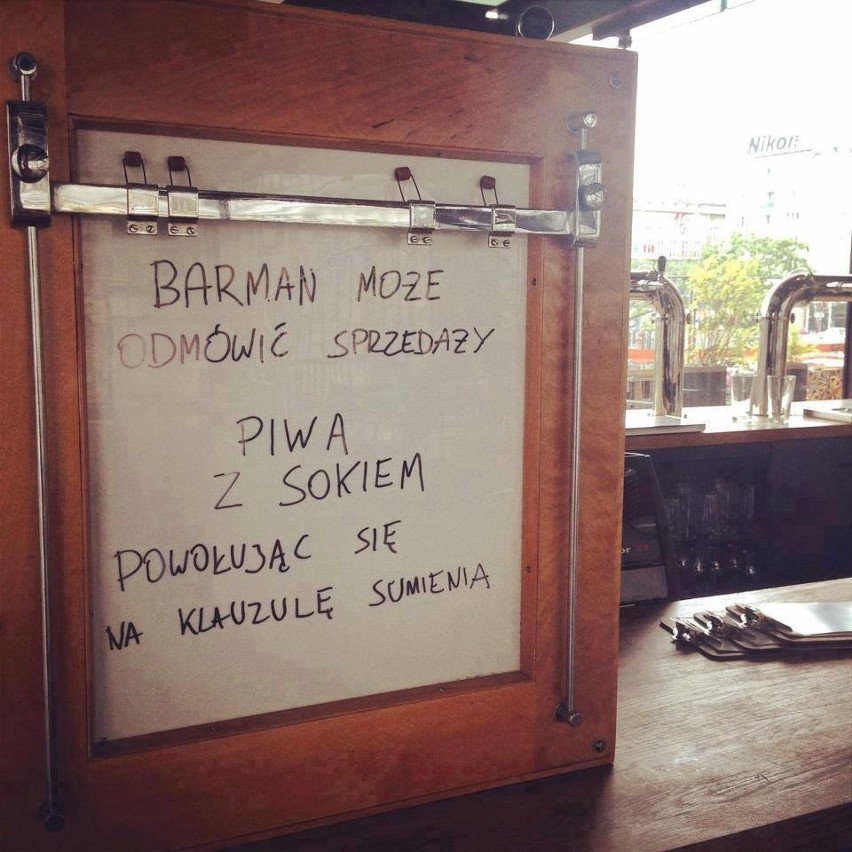 Nikon
BARMAN MOŻE
ODMÓWIĆ SPRZEDAŻY
PIWA
Z SOKIEM
POWOŁUJĄC SIĘ
NA KLAUZULĘ SUMIENIA